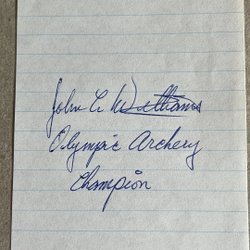 John C Williams
Olympic Archery
Champion